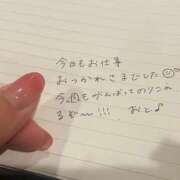 今日もお仕事
おつかれさまでした☺
今週もがんばってのりこれ
るぞ〜!!! おと♪